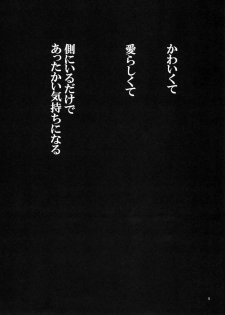 かわいくて
愛らしくて
側にいるだけで
あったかい気持ちになる